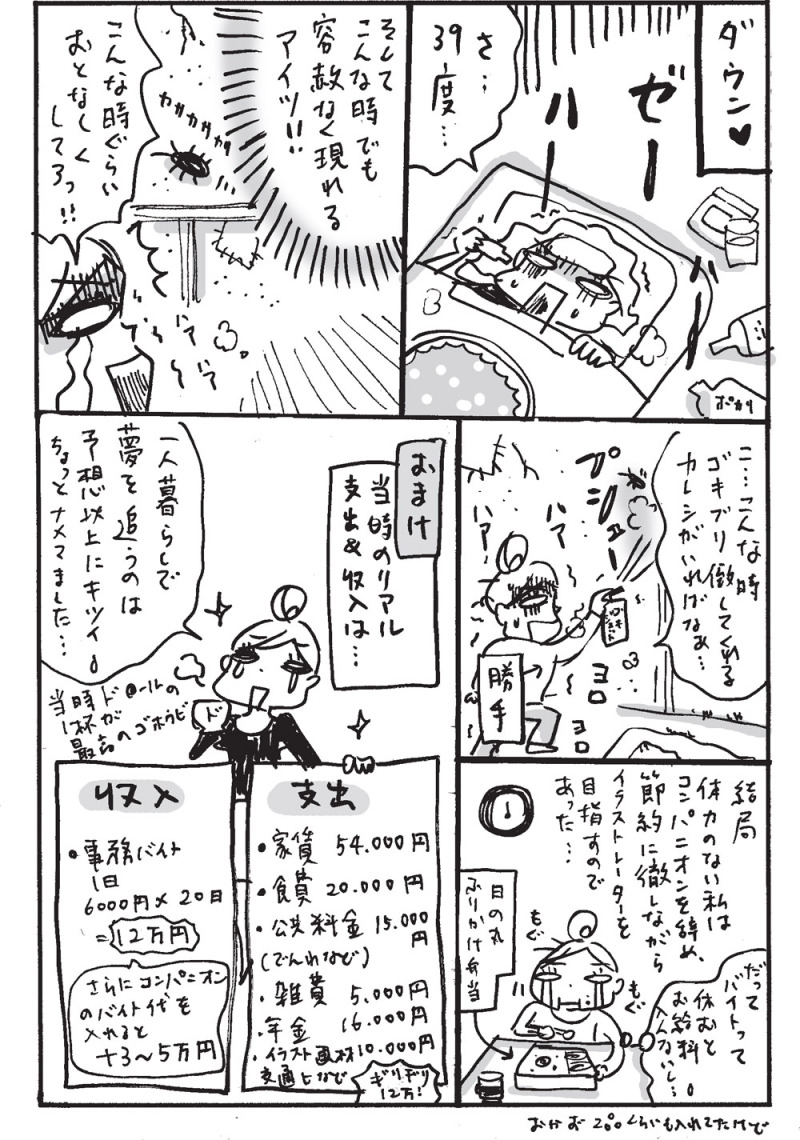 ダウン♥
ゼーハー
ハー
さ…
39度…
ポカリ
そして
こんな時でも
容赦なく現れる
アイツ!!
カサカサカサ
こんな時ぐらい
おとなしく
してろっ!!
ハア
ハア
こ…こんな時
ゴキブリ倒してくれる
カレシがいればなぁ…
プシュー
ハア
ハア
ヨロ
ヨロ
勝手
おまけ
当時のリアル
支出&収入は…
一人暮らしで
夢を追うのは
予想以上にキツイ。
ちょっとナメてました…
当時ド@ールの
1杯が
最高のゴホウビ
ド
収入
・事務バイト
1日
6000円×20日
=12万円
さらにコンパニオン
のバイト代を
入れると
+3〜5万円
支出
・家賃 54.000円
・食費 20.000円
・公共料金 15.000円
(でんわなど)
・雑費 5.000円
・年金 16.000円
・イラスト画材 10.000円
交通ヒなど
ギリギリ
12万!
結局
体力のない私は
コンパニオンを辞め、
節約に徹しながら
イラストレーターを
目指すので
あった…
だって
バイトって
休むと
お給料
入んないし…
日の丸
ふりかけ弁当
もぐ
もぐ
おかお200くらいも入れてたけど